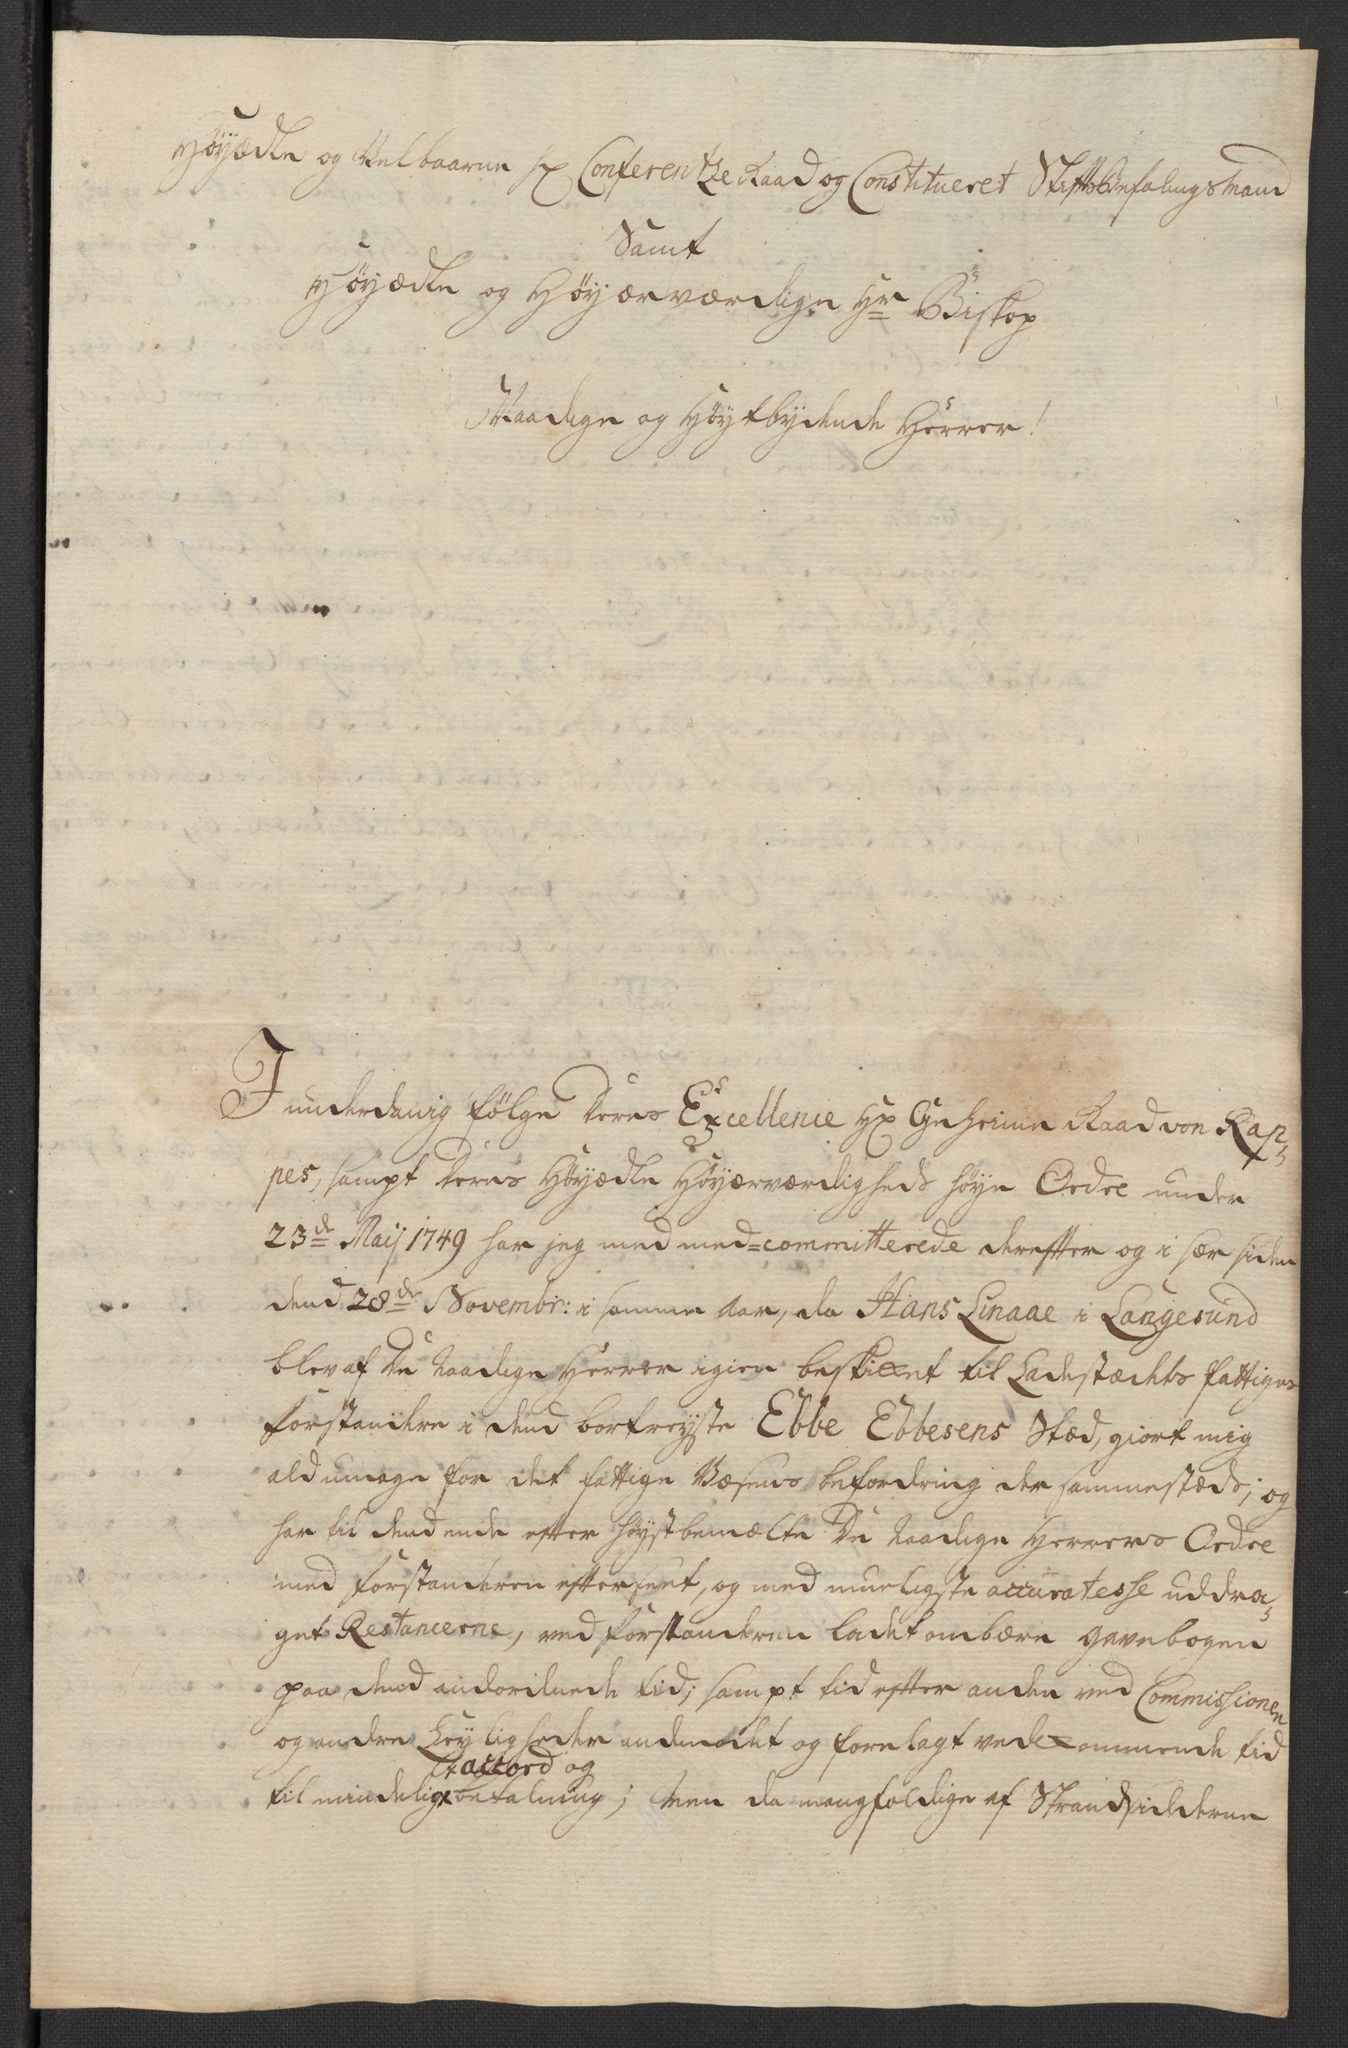 Höyædle og Velbaarne Hr Conferentze Raad og Constitueret Stiftsbefalings Mand
Samt
Höyædle og Höyærværdige Hr Biskop
Naadige og Höytbydende Herrer!
I underdanig fölge Deres Excellence Hr Geheime Raad von Rap-
pes, sampt Deres Höyædle Höyærværdigheds höye Ordre under
23de Maij 1749 har jeg med med-committerede derefter og i sær siden
dend 28de Novembr: i samme Aar, da Hans Linaae i Langesund
blev af De Naadige Herrer igien beskicket til Ladestædets fattiges
forstandere i dend bortreyste Ebbe Ebbesens Stæd, giort mig
ald umage for det fattige Væsens befordring der sammestæds; og
har til dend ende efter höystbemælte De Naadige Herrers Ordre
med forstanderen efterseet, og med mueligste accuratesse uddra-
get Restancerne, ved forstanderen ladet ombære gavebogen
paa dend anordnede tid; sampt tid efter anden ved Commissionen
og andre Leyligheder anmodet og forelagt vedkommende tid
accord og
til mindelig betalning; Men da mangfoldige af Strandsidderne